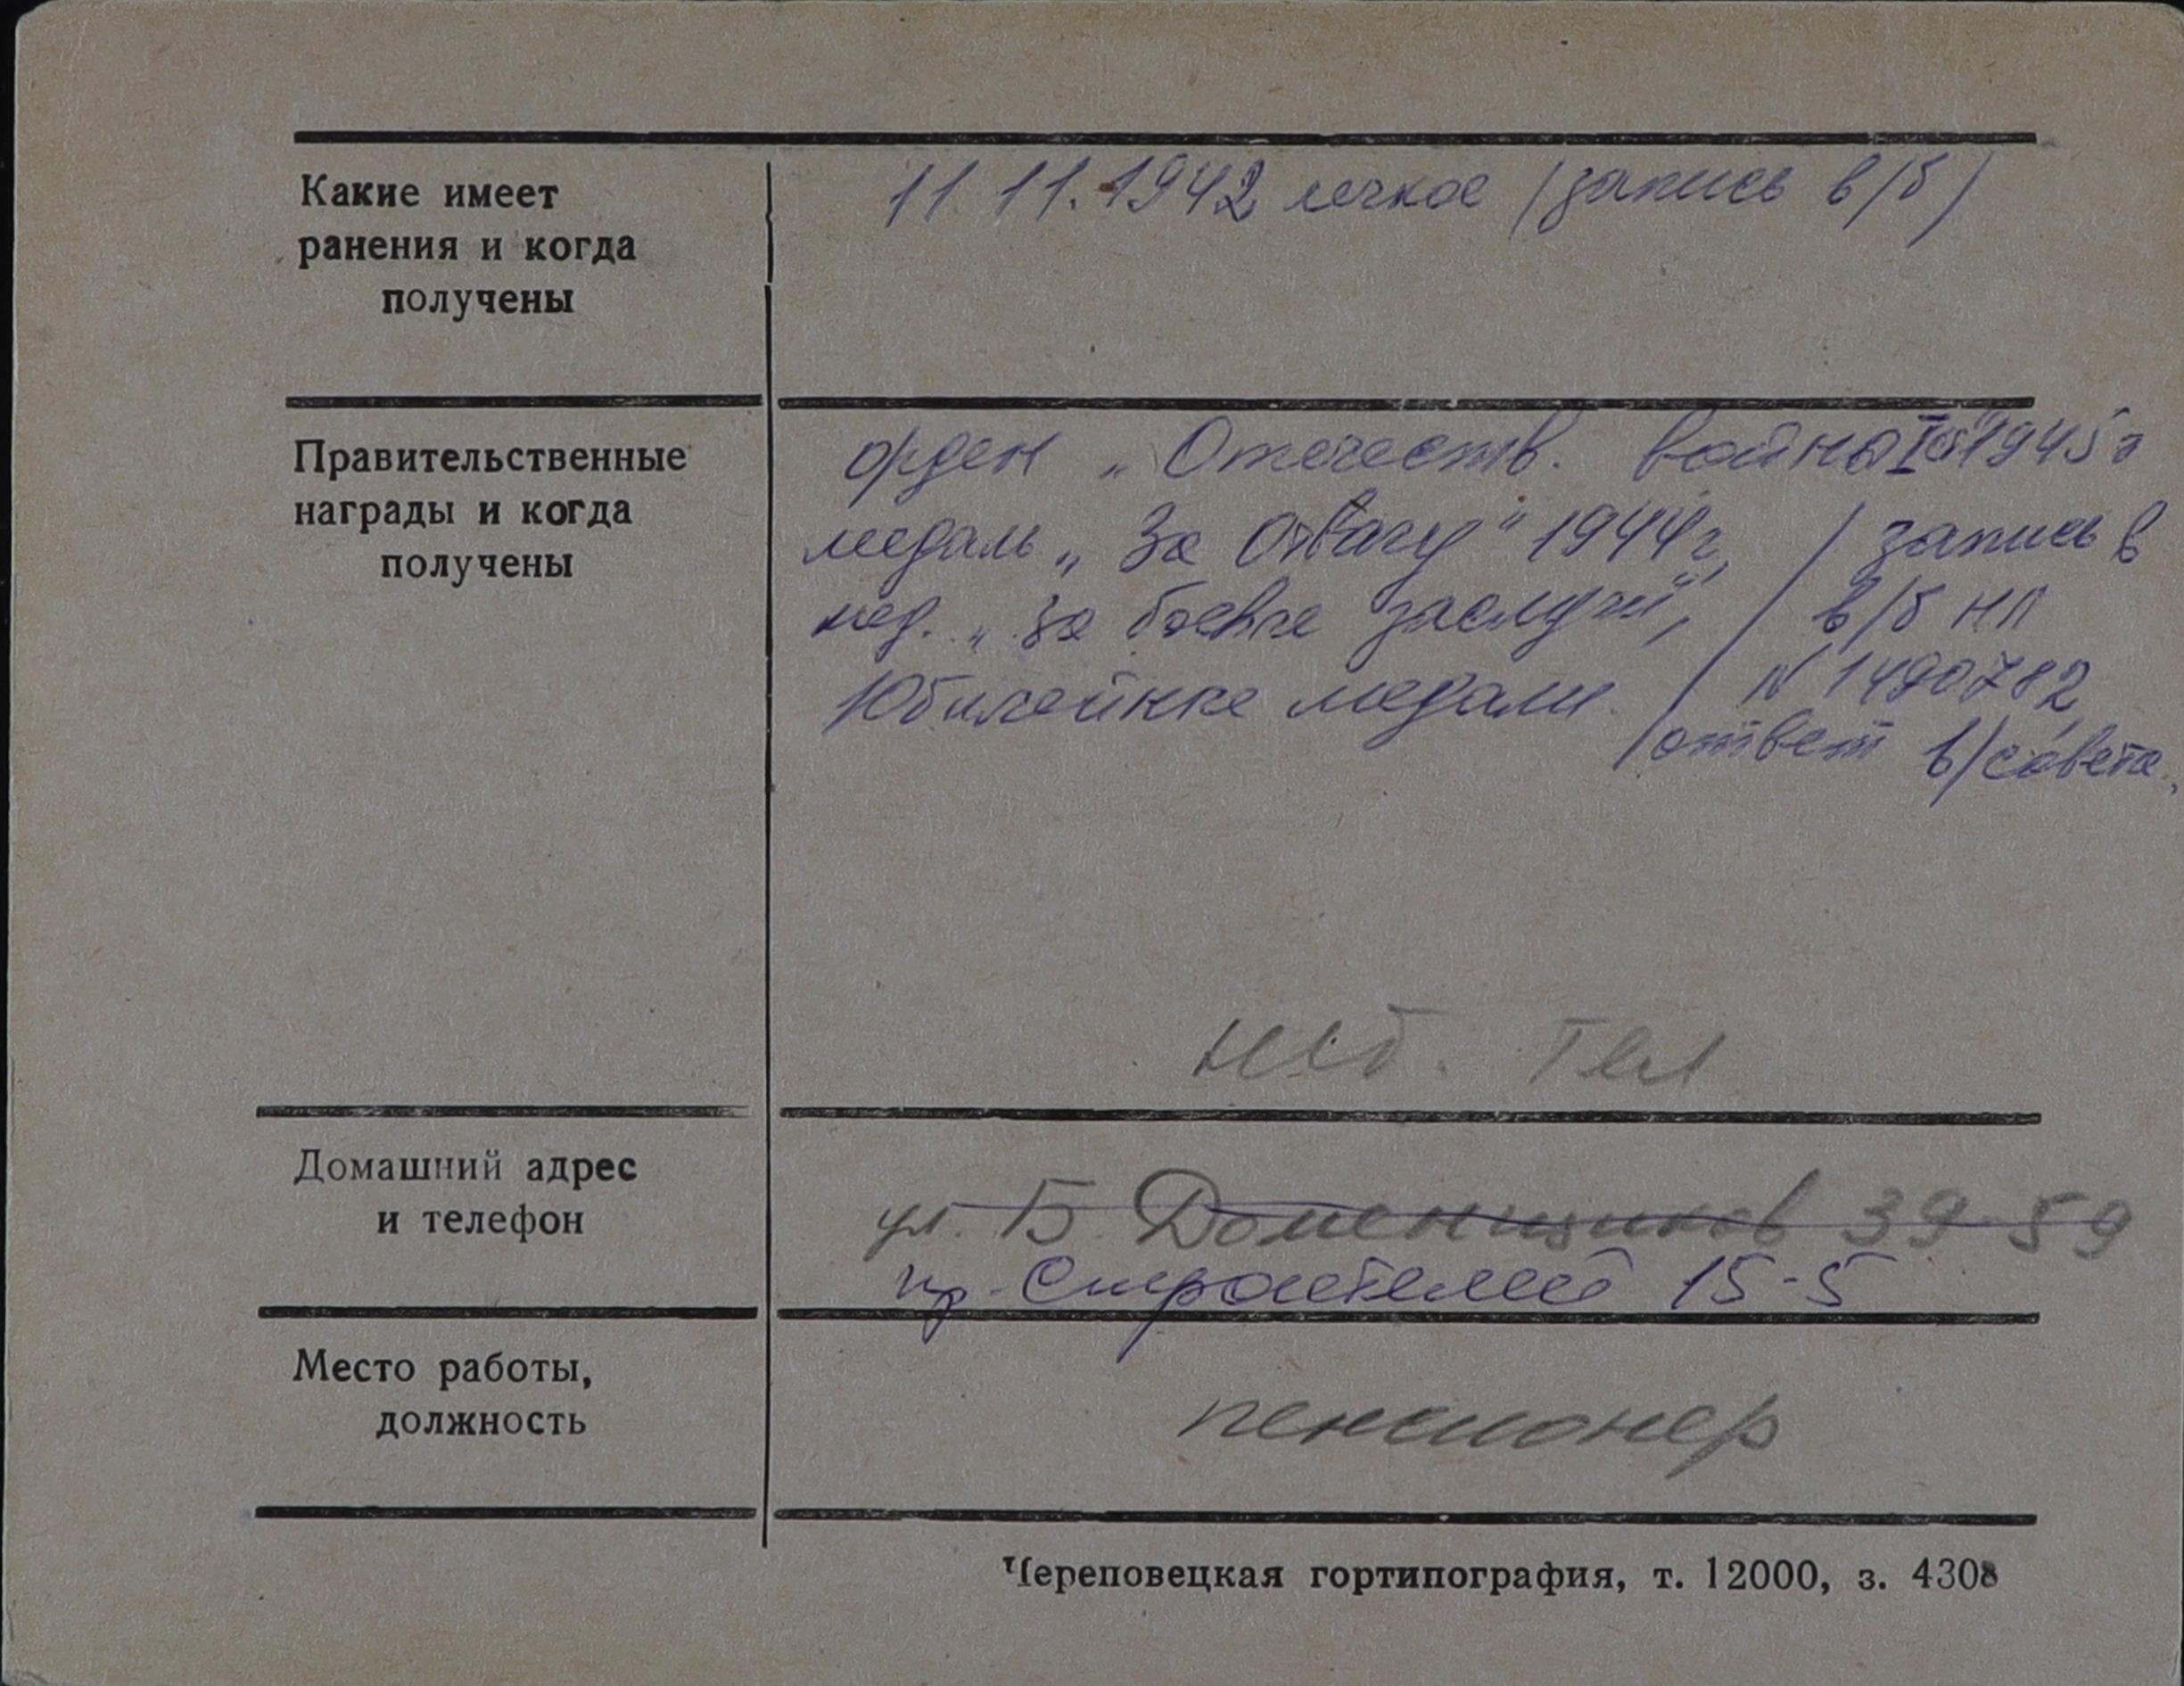 Какие имеет
ранения и когда
получены
11.11.1942 легкое (запись в/б)
Правительственные
награды и когда
получены
орден „Отечеств. война I ст" 1945г
медаль „За Отвагу" 1944г,
мед. „За боевые заслуги",
Юбилейные медали.
/ запись в
/ в/б НЛ
/ N 1490782
/ ответ в/совета.
тел
Домашний адрес
и телефон
ул. Б. Доменщиков 39-59
пр. Строителей 15-5
Место работы,
должность
пенсионер
Череповецкая гортипография, т. 12000, з. 4308